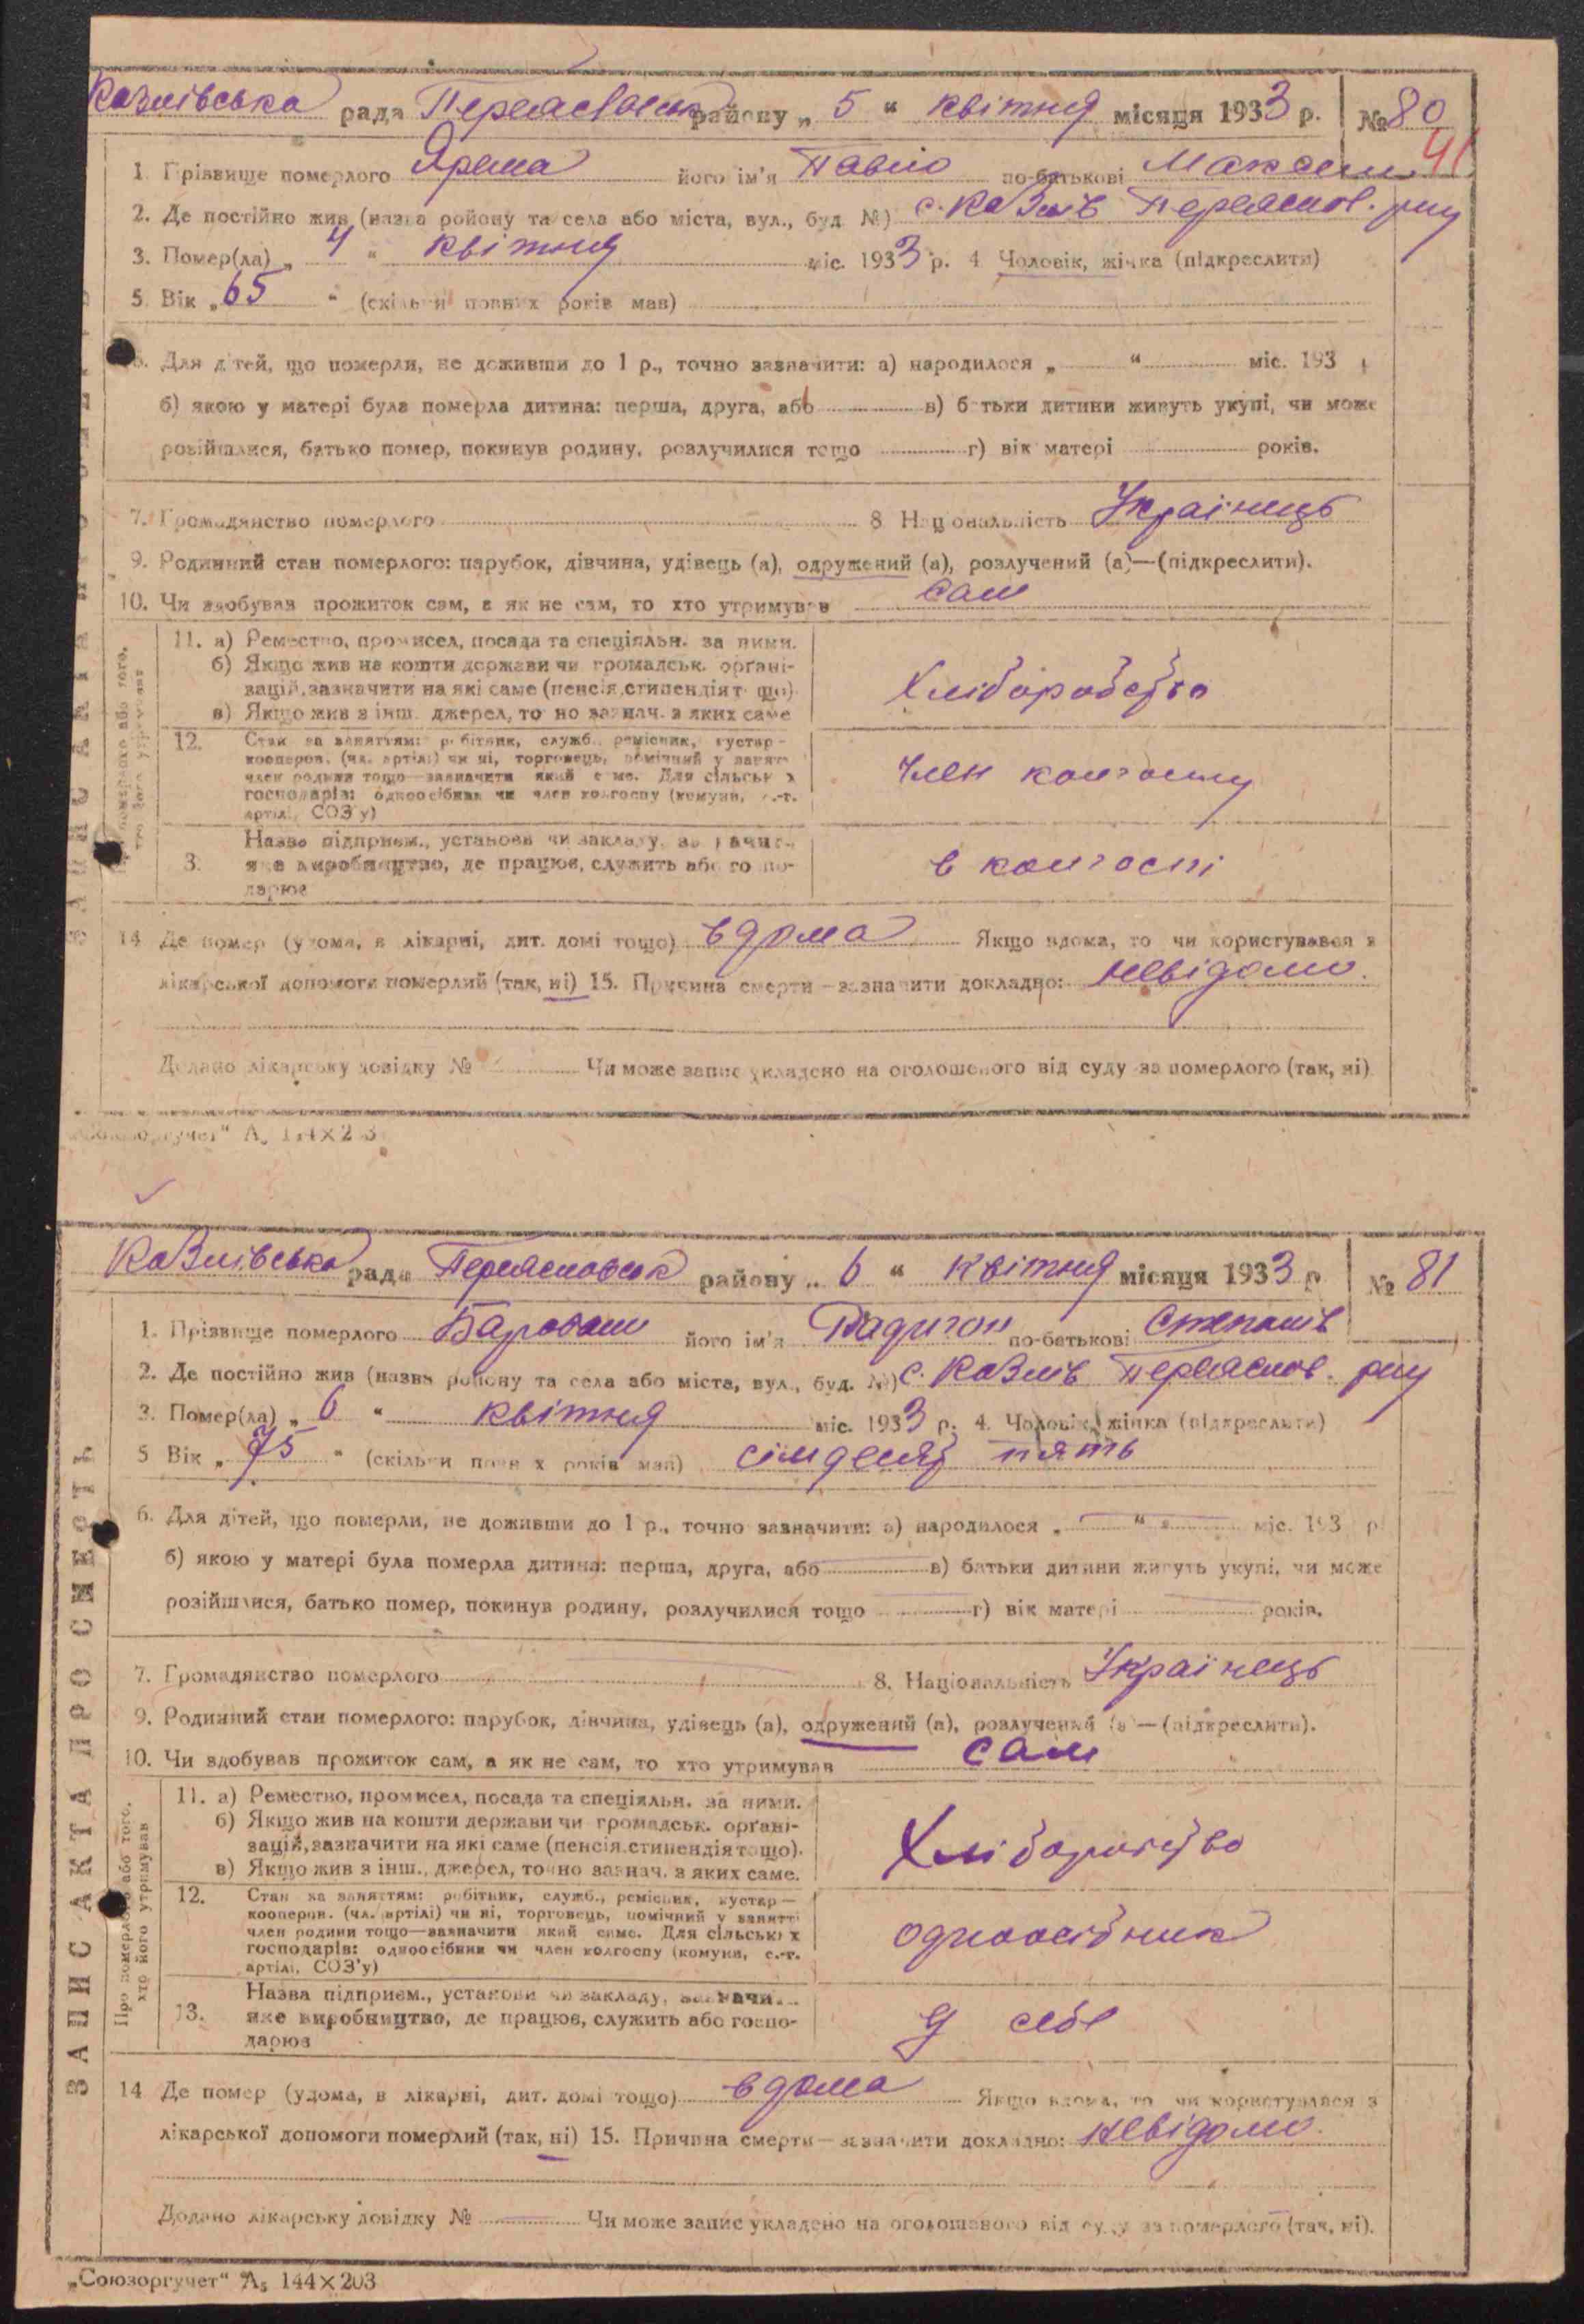 Козлівська рада Переяславськ району „ 5 “ квітня місяця 1933 р. № 80
41
1. Прізвище померлого Ярема його ім'я Павло по-батькові Максим
2. Де постійно жив (назва району та села або міста, вул., буд. №) с. Козлів Переяслов. р-ну
3. Помер(ла) „ 4 “ квітня міс. 1933 р. 4. Чоловік, жінка (підкреслити)
5. Вік „ 65 “ (скільки повних років мав)
6. Для дітей, що померли, не доживши до 1 р., точно зазначити: а) народилося „ “ міс. 193 р
б) якою у матері була померла дитина: перша, друга, або в) батьки дитини живуть укупі, чи може
розійшлися, батько помер, покинув родину, розлучилися тощо г) вік матері років.
7. Громадянство померлого 8. Національність Українець
9. Родинний стан померлого: парубок, дівчина, удівець (а), одружений (а), розлучений (а)—(підкреслити).
10. Чи здобував прожиток сам, а як не сам, то хто утримував сам
11. а) Ремество, промисел, посада та спеціяльн. за ними.
б) Якщо жив на кошти держави чи громадськ. орґані-
зацій, зазначити на які саме (пенсія, стипендія тощо)
в) Якщо жив з інш. джерел, точно зазнач. з яких саме
Хліборобство
12. Стан за заняттям: робітник, служб., ремісник, кустар—
кооперов. (чл. артілі) чи ні, торговець, помічний у занятті
член родини тощо—зазначити який саме. Для сільських
господарів: одноосібник чи член колгоспу (комуни, с.-г.
артілі, СОЗ'у)
член колгоспу
Назва підприєм., установи чи закладу, зазначити
3. яке виробництво, де працює, служить або госпо-
дарює
в колгоспі
14 Де помер (удома, в лікарні, дит. домі тощо) вдома Якщо вдома, то чи користувався з
лікарської допомоги померлий (так, ні) 15. Причина смерти—зазначити докладно: невідомо.
Додано лікарську довідку № Чи може запис укладено на оголошеного від суду за померлого (так, ні)
„Союзоргучет“ А₅ 144×203
Козлівська рада Переясловськ району „ 6 “ квітня місяця 1933 р № 81
1. Прізвище померлого його ім'я по-батькові Степанів
2. Де постійно жив (назва району та села або міста, вул., буд. №) с. Козлів Переяслов. р-ну
3. Помер(ла) „ 6 “ квітня міс. 1933 р. 4. Чоловік, жінка (підкреслити)
5 Вік „ 75 “ (скільки повних років мав) сімдесят пять
6. Для дітей, що померли, не доживши до 1 р., точно зазначити: а) народилося „ “ міс. 193 р
б) якою у матері була померла дитина: перша, друга, або в) батьки дитини живуть укупі, чи може
розійшлися, батько помер, покинув родину, розлучилися тощо г) вік матері років.
7. Громадянство померлого 8. Національність Українець
9. Родинний стан померлого: парубок, дівчина, удівець (а), одружений (а), розлучений (а)—(підкреслити).
10. Чи здобував прожиток сам, а як не сам, то хто утримував сам
ЗАПИС АКТА ПРО СМЕРТЬ
Про померлого або того,
хто його утримував
11. а) Ремество, промисел, посада та спеціяльн. за ними.
б) Якщо жив на кошти держави чи громадськ. орґані-
зацій, зазначити на які саме (пенсія, стипендія тощо).
в) Якщо жив з інш., джерел, точно зазнач. з яких саме.
12. Стан за заняттям: робітник, служб., ремісник, кустар—
кооперов. (чл. артілі) чи ні, торговець, помічний у занятті
член родини тощо—зазначити який саме. Для сільських
господарів: одноосібник чи член колгоспу (комуни, с.-г.
артілі, СОЗ'у)
одноосібник
Назва підприєм., установи чи закладу, зазначи
13. яке виробництво, де працює, служить або госпо-
дарює
У себе
14 Де помер (удома, в лікарні, дит. домі тощо) вдома Якщо вдома, то чи користувався з
лікарської допомоги померлий (так, ні) 15. Причина смерти—зазначити докладно: невідомо.
Додано лікарську довідку № Чи може запис укладено на оголошеного від суду за померлого (так, ні).
„Союзоргучет“ А₅ 144×203